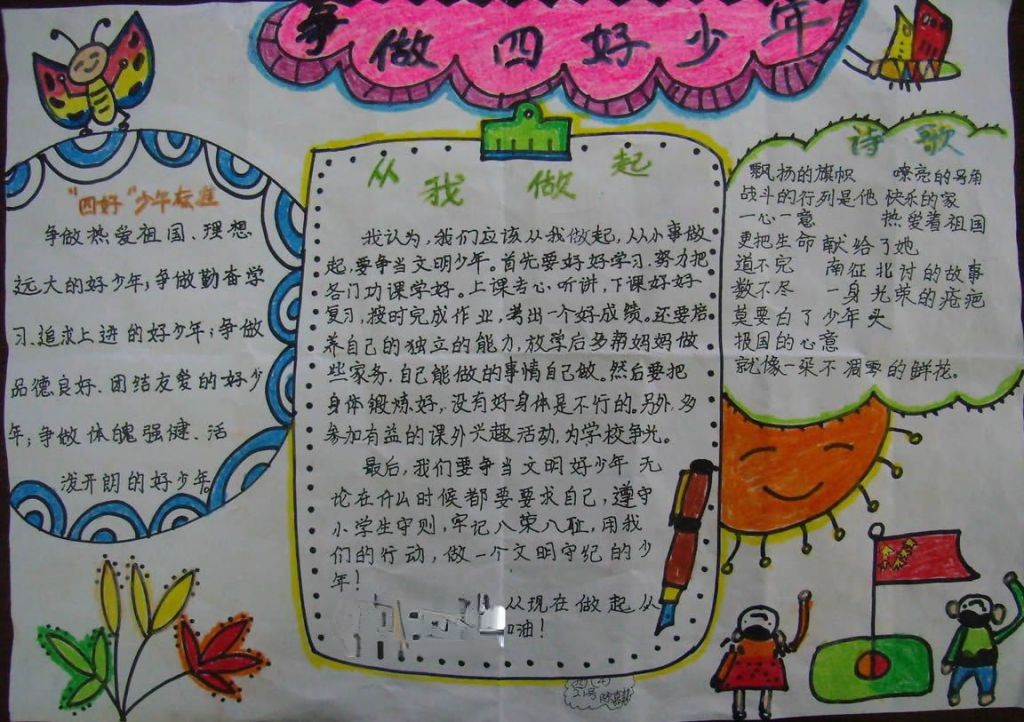 争做四好少年
"四好"少年标准
争做热爱祖国、理想
远大的好少年;争做勤奋学
习、追求上进的好少年;争做
品德良好、团结友爱的好少
年;争做体魄强健、活
泼开朗的好少年。
从我做起
我认为,我们应该从我做起,从小事做
起,要争当文明少年。首先要好好学习,努力把
各门功课学好。上课专心听讲,下课好好
复习,按时完成作业,考出一个好成绩。还要培
养自己的独立的能力,放学后多帮妈妈做
些家务,自己能做的事情自己做。然后要把
身体锻炼好,没有好身体是不行的。另外,多
参加有益的课外兴趣活动,为学校争光。
最后,我们要争当文明好少年 无
论在什么时候都要要求自己,遵守
小学生守则,牢记八荣八耻,用我
们的行动,做一个文明守纪的少
年!
从现在做起从
加油!
诗歌
飘扬的旗帜 嘹亮的号角
战斗的行列是他 快乐的家
一心一意 热爱着祖国
更把生命献给了她
道不完 南征北讨的故事
数不尽 一身光荣的疮疤
莫要白了少年头
报国的心意
就像一朵不凋零的鲜花。
21号